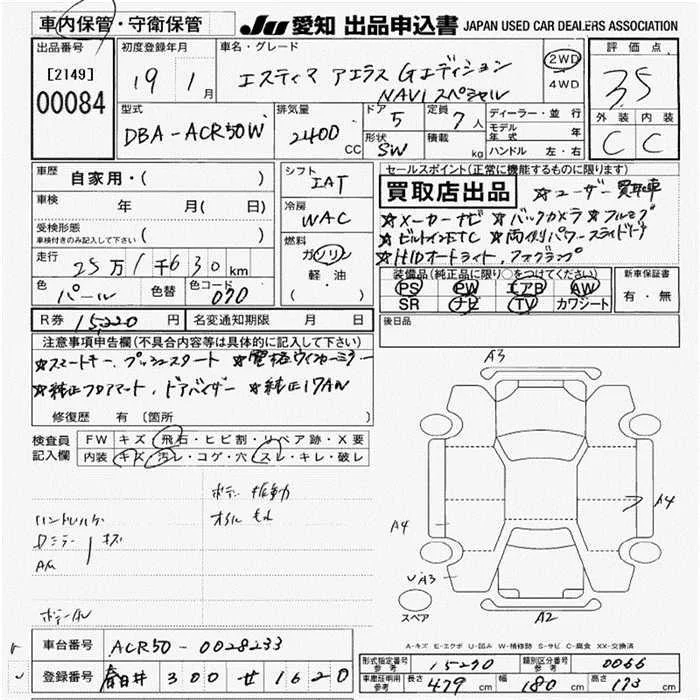 車内保管・守衛保管 JU 愛知 出品申込書 JAPAN USED CAR DEALERS ASSOCIATION
出品番号 初度登録年月 車名・グレード 評価点
[2149] 19 1 月 エスティマ アエラス Gエディション 2WD 3.5
00084 NAVI スペシャル 4WD
型式 排気量 ドア 定員 ディーラー・並行 外装 内装
DBA-ACR50W 2400 CC 5 7人 モデル年式 年 C C
形状 SW 積載 kg ハンドル 左・右
車歴 自家用・( ) シフト セールスポイント(正常に機能するものに限ります)
IAT 買取店出品 ☆ユーザー買取車
車検 年 月( 日) 冷房 ☆メーカーナビ ☆バックカメラ ☆フルセグ
受検形態 WAC ☆ビルトインETC ☆両側パワースライドドア
車検付きのみ記入して下さい ( ) 燃料 ☆HIDオートライト、フォグランプ
走行 25万1千630km ガソリン 装備品(純正品に限り○をつけてください) 新車保証書
色 パール 色替 色コード 070 軽・油 PS PW エアB AW 有・無
( ) SR ナビ TV カワシート
R券 15,220 円 名変通知期限 月 日 後日品
注意事項申告欄(不具合内容等は具体的に記入して下さい)
☆スマートキー、プッシュスタート ☆電格ウィンカーミラー
☆純正フロアマット、ドアバイザー ☆純正17AW
修復歴 有 (箇所 )
検査員 FW キズ・飛石・ヒビ割・リペア跡・X要
記入欄 内装 キズ・汚レ・コゲ・穴・スレ・キレ・破レ
ボデー 振動
ハンドルスレ オイル もれ
キズ
A3
A4
A4
A3
スペア
A2
A-キズ E-エクボ U-凹み W-補修跡 S-サビ C-腐食 XX-交換済
車台番号 ACR50-0028233
登録番号 春日井 300 せ 1620
形式指定番号 参考 15290 類別区分番号 参考 0066
車庫証明用 参考 長さ 479 cm 幅 180 cm 高さ 173 cm